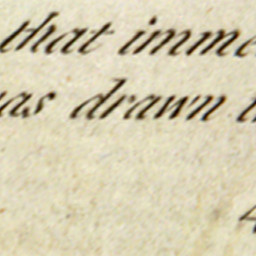 that imme
as drawn